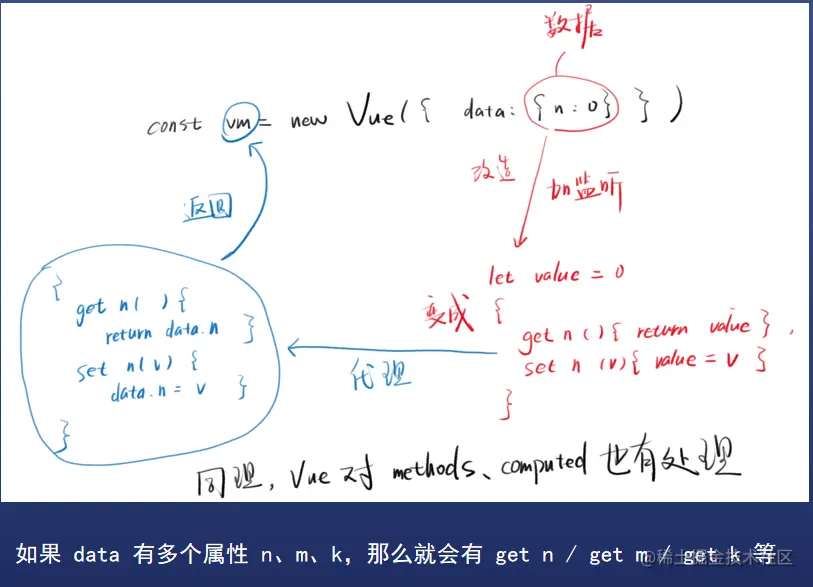 数据
const vm = new Vue({ data: {n:0} })
改造
加监听
返回
let value = 0
变成
{
get n(){ return value },
set n(v){ value = v }
}
代理
{
get n(){
return data.n }
set n(v) {
data.n = v }
}
同理, Vue 对 methods、computed 也有处理
如果 data 有多个属性 n、m、k，那么就会有 get n / get m / get k 等
@稀土掘金技术社区